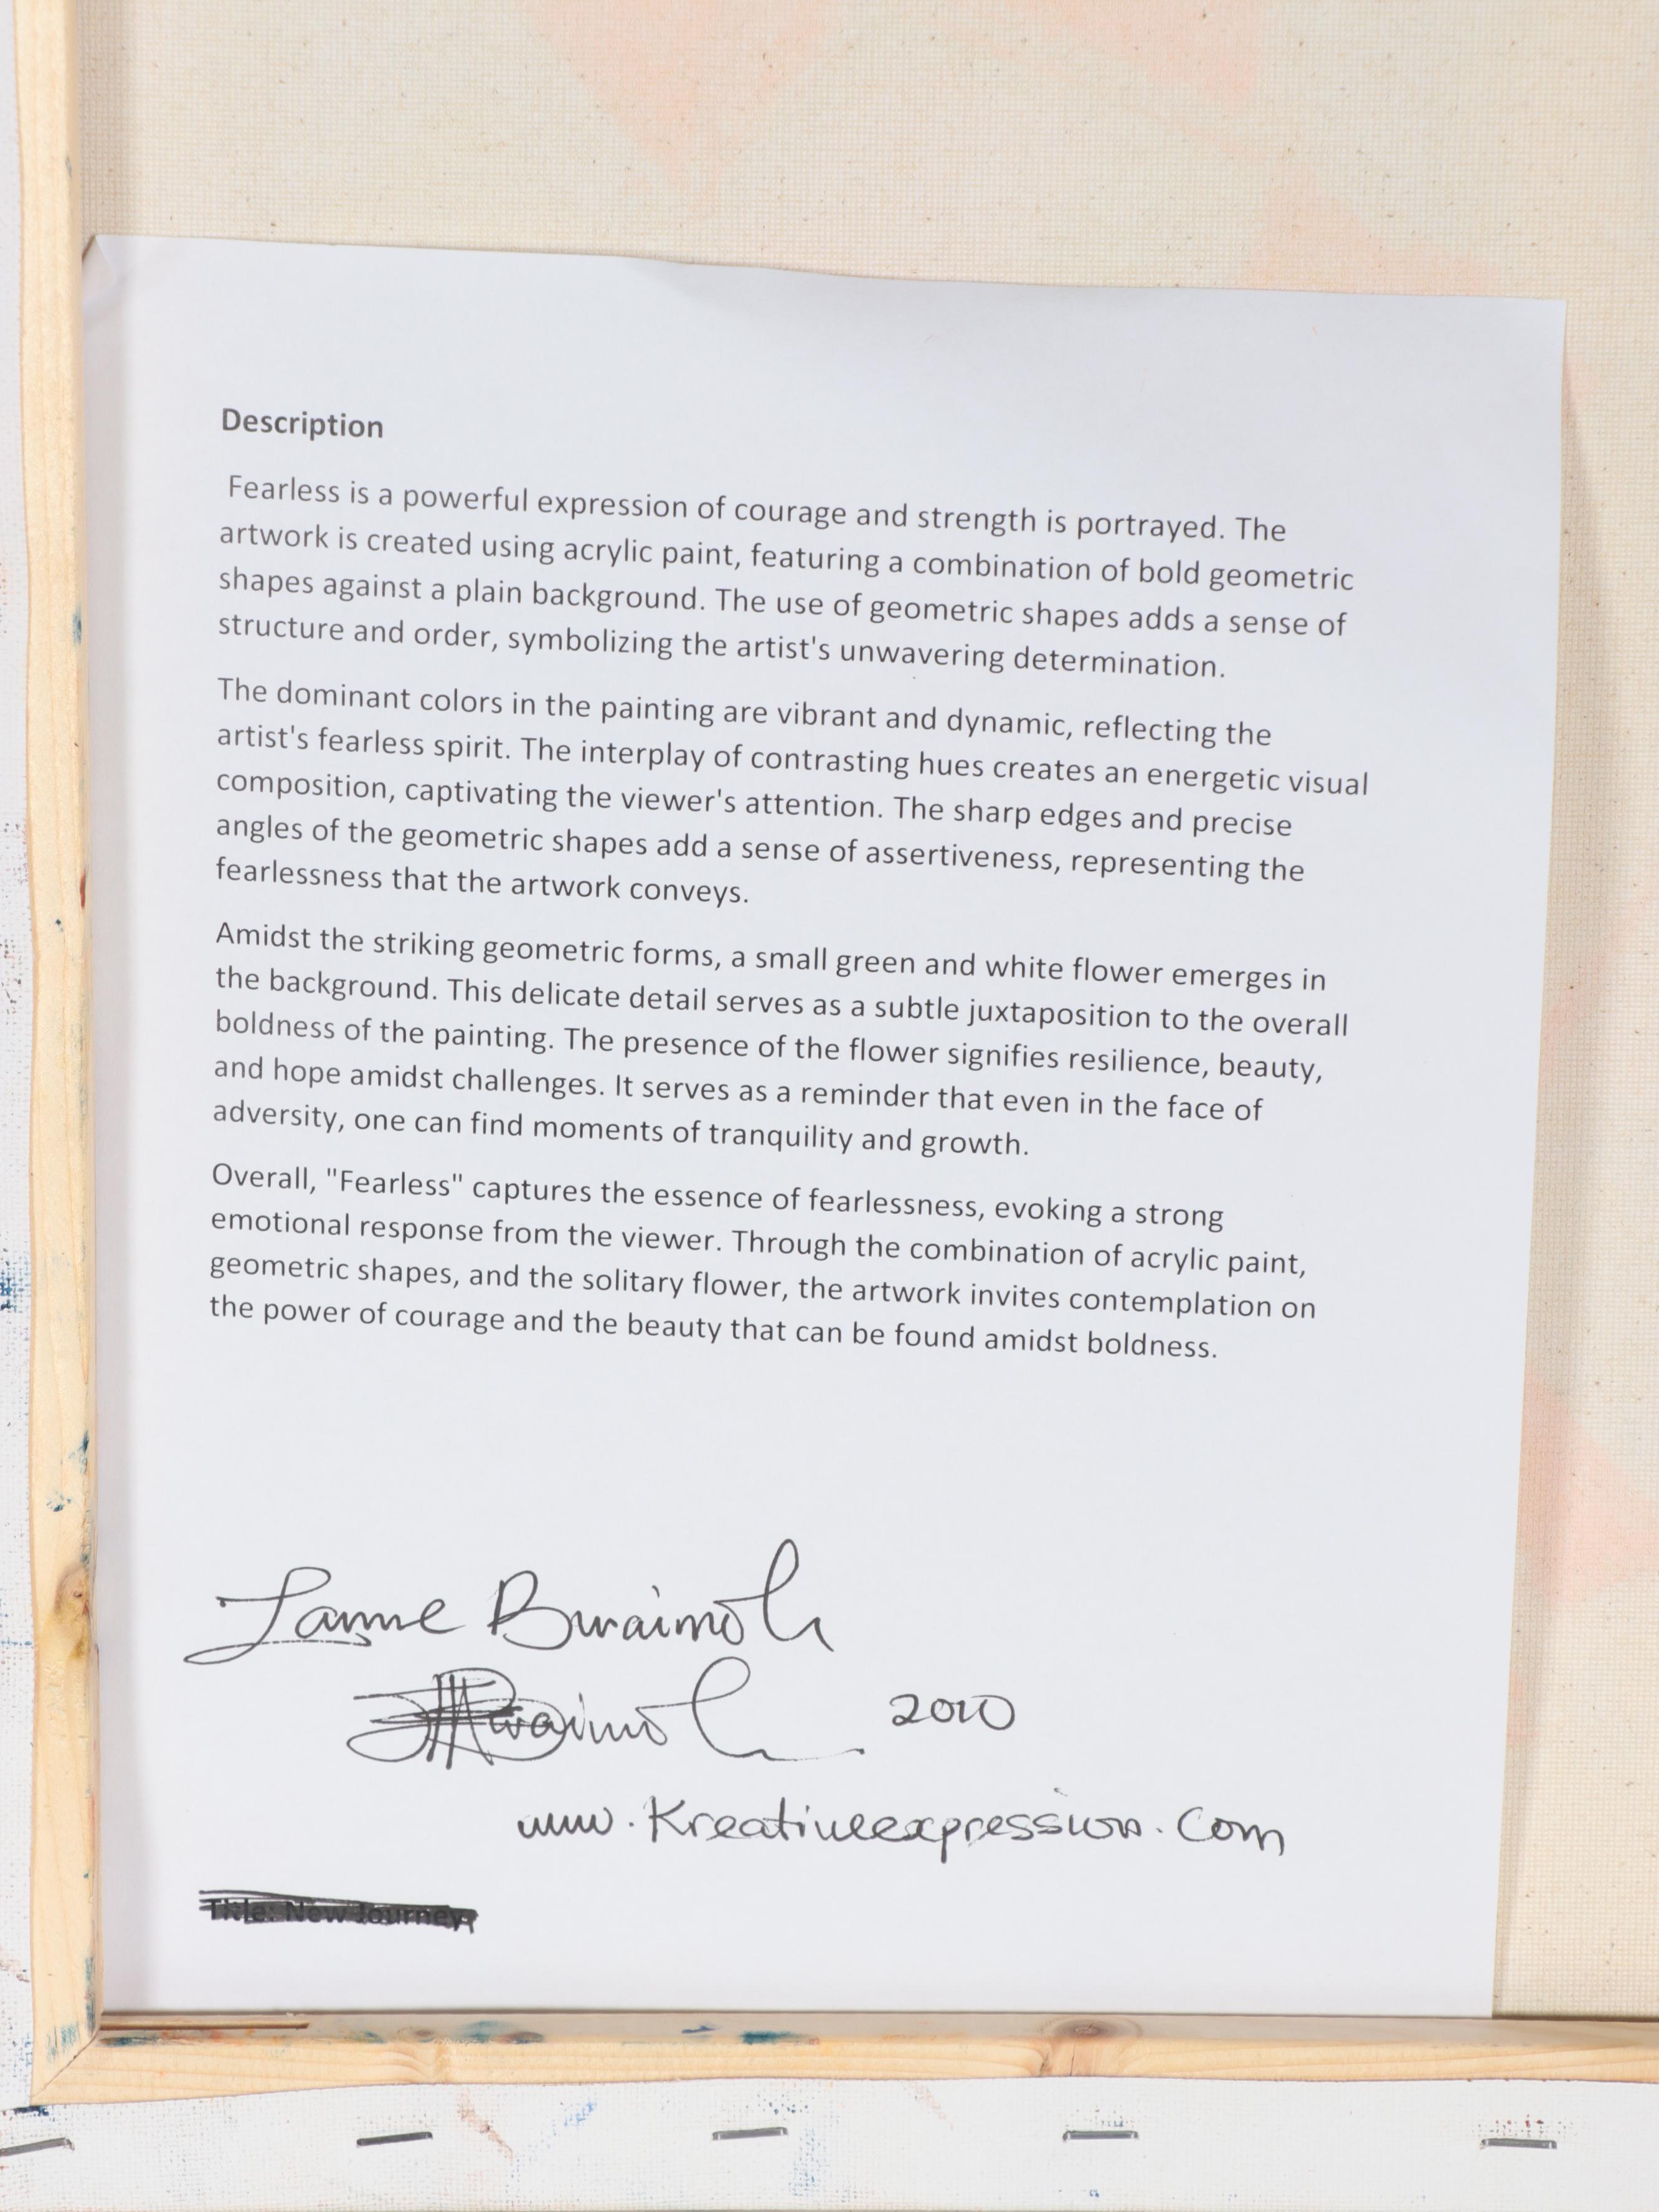 Description
Fearless is a powerful expression of courage and strength is portrayed. The
artwork is created using acrylic paint, featuring a combination of bold geometric
shapes against a plain background. The use of geometric shapes adds a sense of
structure and order, symbolizing the artist's unwavering determination.
The dominant colors in the painting are vibrant and dynamic, reflecting the
artist's fearless spirit. The interplay of contrasting hues creates an energetic visual
composition, captivating the viewer's attention. The sharp edges and precise
angles of the geometric shapes add a sense of assertiveness, representing the
fearlessness that the artwork conveys.
Amidst the striking geometric forms, a small green and white flower emerges in
the background. This delicate detail serves as a subtle juxtaposition to the overall
boldness of the painting. The presence of the flower signifies resilience, beauty,
and hope amidst challenges. It serves as a reminder that even in the face of
adversity, one can find moments of tranquility and growth.
Overall, "Fearless" captures the essence of fearlessness, evoking a strong
emotional response from the viewer. Through the combination of acrylic paint,
geometric shapes, and the solitary flower, the artwork invites contemplation on
the power of courage and the beauty that can be found amidst boldness.
2010
www.Kreativeexpression.com
Title: New Journey